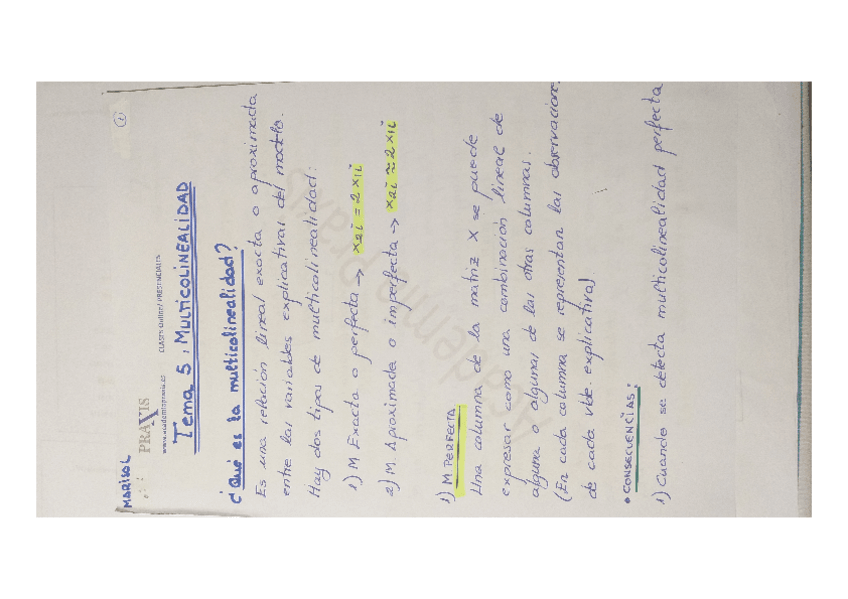 MARISOL
PRAXIS
www.academiapraxis.es CLASES Online/PRESENCIALES
1
Tema 5. MULTICOLINEALIDAD
¿Qué es la multicolinealidad?
Es una relación lineal exacta o aproximada
entre las variables explicativas del modelo.
Hay dos tipos de multicolinealidad:
1) M Exacta o perfecta → x2i = 2x1i
2) M. Aproximada o imperfecta → x2i ≈ 2x1i
Academia praxis
1) M PERFECTA
Una columna de la matriz X se puede
expresar como una combinación lineal de
alguna o algunas de las otras columnas.
(En cada columna se representan las observaciones
de cada vble. explicativa)
• CONSECUENCIAS:
1) Cuando se detecta multicolinealidad perfecta